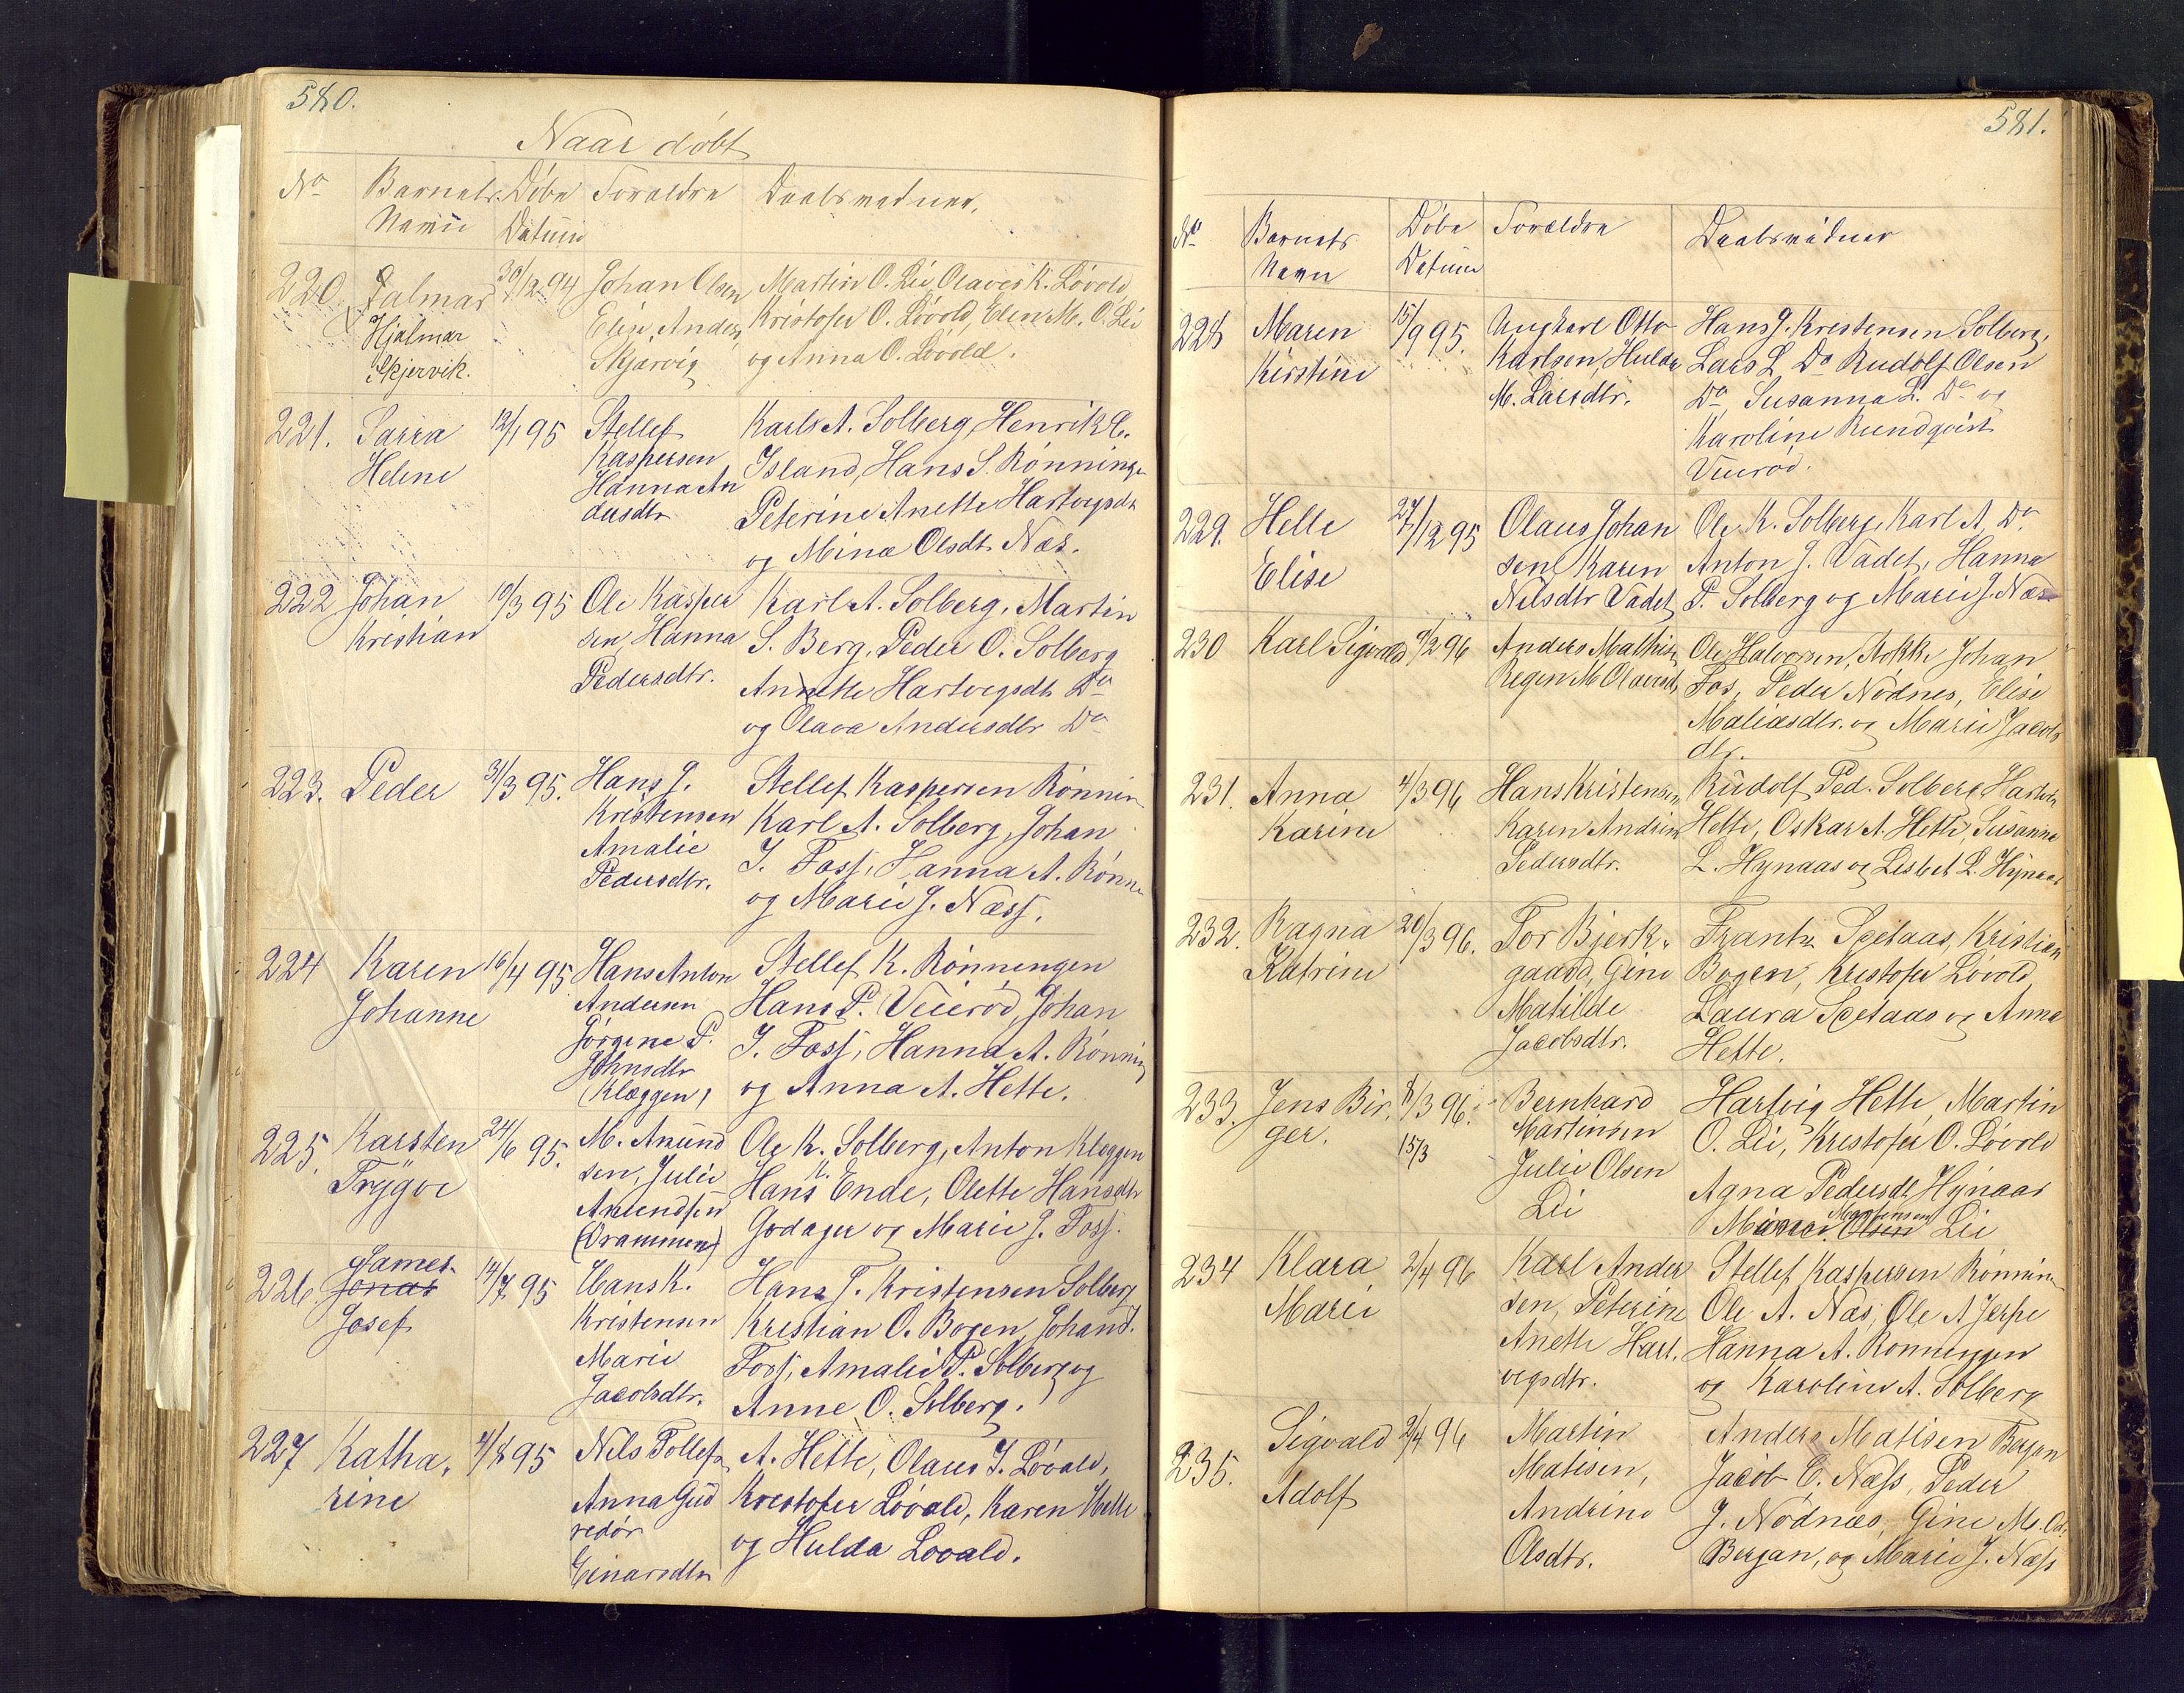 580.
Naar døbt
No Barnets Døbe Forældre Daabsvidner.
Navn Datum
220. Jalmar 30/12 94 Johan Olsen Martin O. Lii, Olaves K. Løvold
Hjalmar Elin Anders Kristofer O. Løvold, Elen M. O. Lii
Skjervik. Skjærvig og Anna O. Løvold.
221. Sarra 12/1 95 Stellef Karls A. Solberg, Henrik C.
Helene Kaspersen Island, Hans S. Rønninge
Hanna An Peterine Anette Hartvigsdt
dersdtr og Mina Olsdt. Næs.
222 Johan 10/3 95 Ole Kasper Karl A. Solberg, Martin
Kristian sen, Hanna S. Berg, Peder O. Solberg
Pedersdtr. Annette Hartvigsdt Do
og Olava Andersdtr Do
223. Peder 31/3 95. Hans J. Stellef Kaspersen Rønnin
Kristensen Karl A. Solberg, Johan
Amalie J. Foss, Hanna A. Rønn
Pedersdtr. og Marie J. Næss.
224 Karen 16/4 95 Hans Anton Stellef K. Rønningen
Johanne Andersen Hans P. Veierød, Johan
Jørgine P. J. Foss, Hanna A. Rønnin
Johnsdtr og Anna A. Hette.
(Kleggen)
225. Karsten 24/6 95. M. Amund Ole K. Solberg, Anton Kleggen
Trygve sen, Julie Hans K. Ende, Olette Hansdtr
Amundsen Godager og Marie J. Foss.
(Drammen)
226 James 14/7 95 Hans K. Hans J. Kristensen Solberg
Jonas Kristensen Kristian O. Bogen, Johan J.
Josef Marie Foss, Amalie P. Solberg og
Jacobsdtr. Anne O. Solberg.
227 Katha, 4/8 95 Nils Tollefs A. Hette, Olaus J. Løvald,
rine Anna Gud Kristofer Løvald, Karen Hette
redør og Hulda Lovald.
Einarsdtr
581.
No Barnets Døbe Forældre Daabsvidner
Navn Datum
228 Maren 15/9 95. Otto Hans J. Kristensen Solberg,
Kirstine Karlsen, Hulda Lars L. Do Rudolf Olsen
M. Larsdtr. Do Susanna L. Do og
Karoline Rundqvist
Veierød.
229. Helle 27/12 95 Olaus Johan Ole K. Solberg, Karl A. Do
Elise sen, Karen Anton J. Vadet, Hanna
Nilsdtr Vadet P. Solberg og Marie J. Næs
230 Karl Sigvald 9/2 96 Anders Mathis Ole Halvorsen, Johan
Regin M Olavesdt Fos, Peder Nødnes, Elise
Maliasdtr. og Marie Jacobs
dtr.
231. Anna 4/3 96 Hans Kristensen Rudolf Ped. Solberg, Hartvi
Karine Karen Andrine Hette, Oskar A. Hette, Susanne
Pedersdtr. L. Hynaas og Lisbet L. Hynaas
232. Ragna 20/3 96. Tor Bjerk, Frantz Setaas, Kristian
Katrine gaard, Gine Bogen, Kristofer Løvold
Matilde Laura Setaas og Anna
Jacobsdtr. Hette.
233. Jens Bir, 8/3 96. Bernhard Hartvig Hette, Martin
ger. 15/3 Martinsen O. Lii, Kristofer O. Løvold
Julie Olsen Agna Pedersdt Hynaas
Lii Martinsen
Olsen Lii
234 Klara 2/4 96 Karl Ander Stellef Kaspersen Rønnin
Marie sen, Peterine Ole A. Næs, Ole A Jerpe
Anette Hart, Hanna A. Rønningen
vigsdtr. og Karoline A. Solberg
235. Sigvald 2/4 96 Martin Anders Matisen Bergan
Adolf Matisen, Jacob C. Næss, Peder
Andrine J. Nødnæs, Gine M. Ols.
Olsdtr. Bergan, og Marie J. Næss